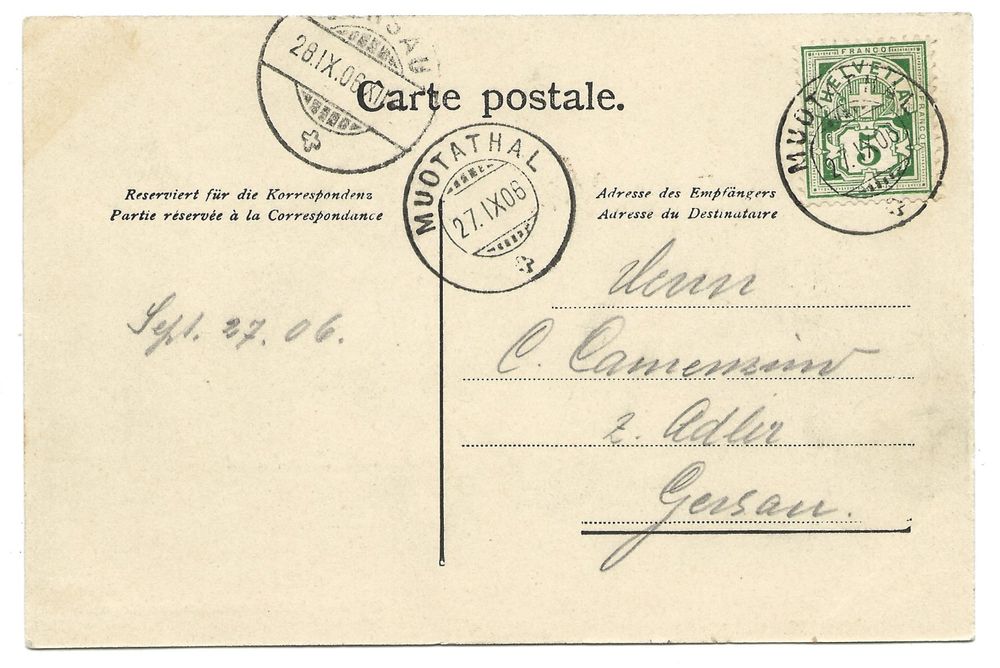 GERSAU
28.IX.06.XI
Carte postale.
FRANCO
HELVETIA
FRANCO
5
MUOTATHAL
27.IX.06
MUOTATHAL
27.IX06
Reserviert für die Korrespondenz
Partie réservée à la Correspondance
Adresse des Empfängers
Adresse du Destinataire
Sept. 27. 06.
Herrn
C. Camenzind
z. Adler
Gersau.